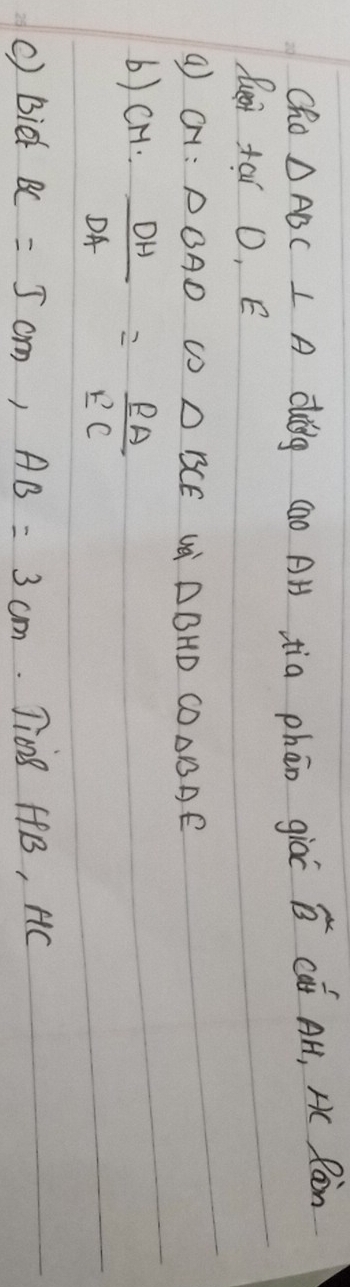 Cho Δ ABC ⊥ A đường cao AH, tia phân giác B̂ cắt AH, AC lần
lượt tại D, E
a) CM: Δ BAD ∽ Δ BCE và Δ BHD ∽ Δ BAE
b) CM: DH/DA = EA/EC
c) Biết BC = 5 cm, AB = 3 cm. Tính HB, HC